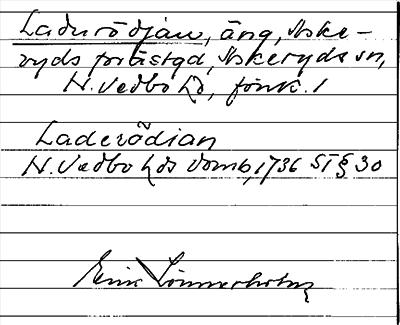 Ladurödjan, äng, Aske-
ryds prästgd, Askeryds sn,
N. Vedbo hd, Jönk. l
Laderödian
N. Vedbo hds domb, 1736 ST § 30
Einar Lönnerholm